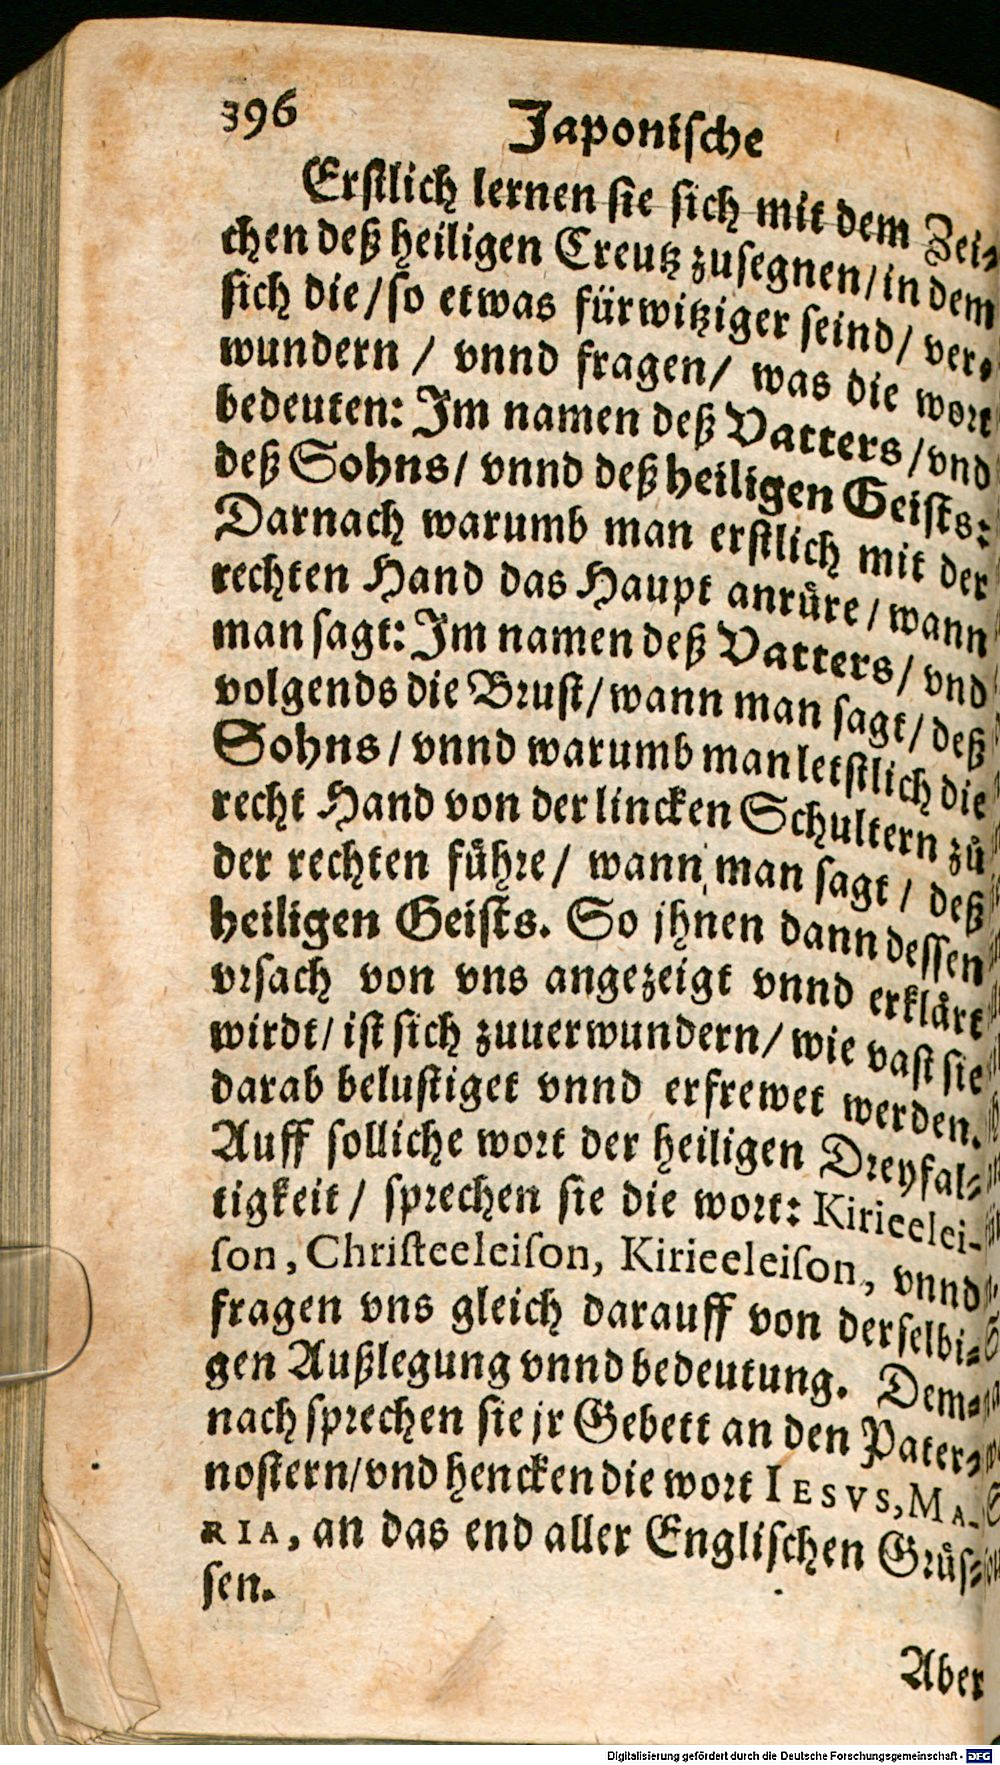 396 Japonische
Erstlich lernen sie sich mit dem Zei-
chen deß heiligen Creutz zusegnen/ in dem
sich die/ so etwas fürwitziger seind/ ver-
wundern / vnnd fragen/ was die wort
bedeuten: Im namen deß Vatters/ vnd
deß Sohns/ vnnd deß heiligen Geists:
Darnach warumb man erstlich mit der
rechten Hand das Haupt anrůre/ wann
man sagt: Im namen deß Vatters/ vnd
volgends die Brust/ wann man sagt/ deß
Sohns/ vnnd warumb man letstlich die
recht Hand von der lincken Schultern zů
der rechten fůhre/ wann man sagt/ deß
heiligen Geists. So jhnen dann dessen
vrsach von vns angezeigt vnnd erklårt
wirdt/ ist sich zuuerwundern/ wie vast sie
darab belustiget vnnd erfrewet werden.
Auff solliche wort der heiligen Dreyfal-
tigkeit/ sprechen sie die wort: Kirieelei-
son, Christeeleison, Kirieeleison, vnnd
fragen vns gleich darauff von derselbi-
gen Außlegung vnnd bedeutung. Dem-
nach sprechen sie jr Gebett an den Pater-
nostern/ vnd hencken die wort IESVS, MA-
RIA, an das end aller Englischen Grůs-
sen.
Aber
Digitalisierung gefördert durch die Deutsche Forschungsgemeinschaft - DFG